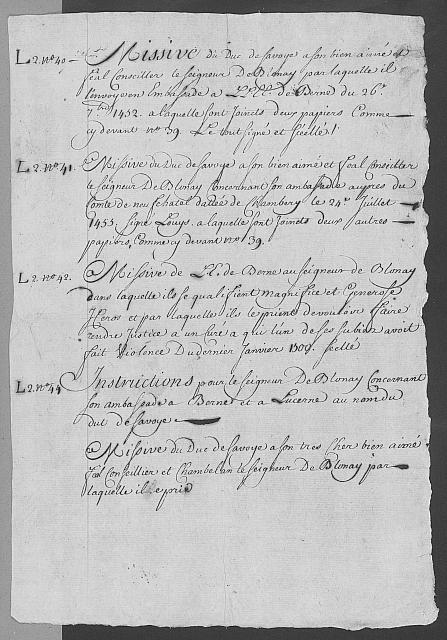 L 2. No 40 - Missive du Duc de Savoye a son bien aimé et
feal Conseiller le seigneur De Blonay par laquelle il
l'envoye en Embassade a LLEE de Berne du 26e
7bre 1452. a laquelle sont Joincts deux papiers Comme
cy devant no 39. Le tout signé et scellé
L 2. No 41. Missive du Duc de Savoye a son bien aimé et feal Conseiller
le seigneur De Blonay Concernant son ambassade aupres du
Comte de neufchatel dattée de Chambery le 24e Juillet
1453. signé Louys. a laquelle sont Joincts deux autres
papiers, Comme cy devant no 39.
L 2. No 42. Missive de LL. de Berne au seigneur de Blonay
dans laquelle ils se qualifient magnifice et Generose
Heros et par laquelle ils le prient de vouloir faire
rendre Justice a un curé a qui l'un de ses avoit
fait Violence Du dernier Janvier 1509. scellé
L 2. No 44 Instructions pour le seigneur De Blonay Concernant
son ambassade a Berne et a Lucerne au nom du
duc de Savoye
Missive du Duc de Savoye a son tres Cher bien aimé
feal Conseillier et Chambelan le seigneur De Blonay par
laquelle il le prie